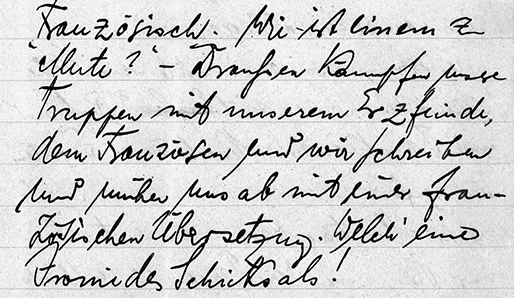 Französisch. Wie ist einem zu
Mute?" – Draußen kämpfen unsere
Truppen mit unserem Erzfeinde,
dem Franzosen und wir schreiben
und mühen uns ab mit einer fran-
zösischen Übersetzung. Welch' eine
Ironie des Schicksals!